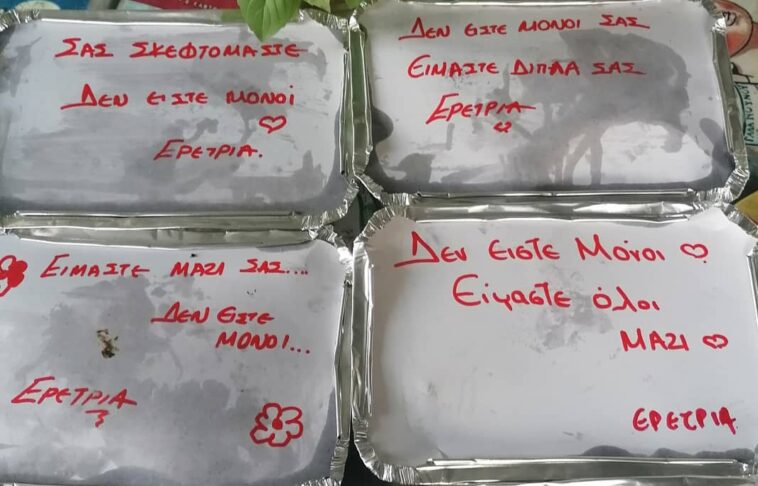 ΣΑΣ ΣΚΕΦΤΟΜΑΣΤΕ
ΔΕΝ ΕΙΣΤΕ ΜΟΝΟΙ
ΕΡΕΤΡΙΑ.
ΔΕΝ ΕΙΣΤΕ ΜΟΝΟΙ ΣΑΣ
ΕΙΜΑΣΤΕ ΔΙΠΛΑ ΣΑΣ
ΕΡΕΤΡΙΑ
ΕΙΜΑΣΤΕ ΜΑΖΙ ΣΑΣ....
ΔΕΝ ΕΙΣΤΕ
ΜΟΝΟΙ...
ΕΡΕΤΡΙΑ
Δεν είστε Μόνοι
Είμαστε όλοι
ΜΑΖΙ
ΕΡΕΤΡΙΑ